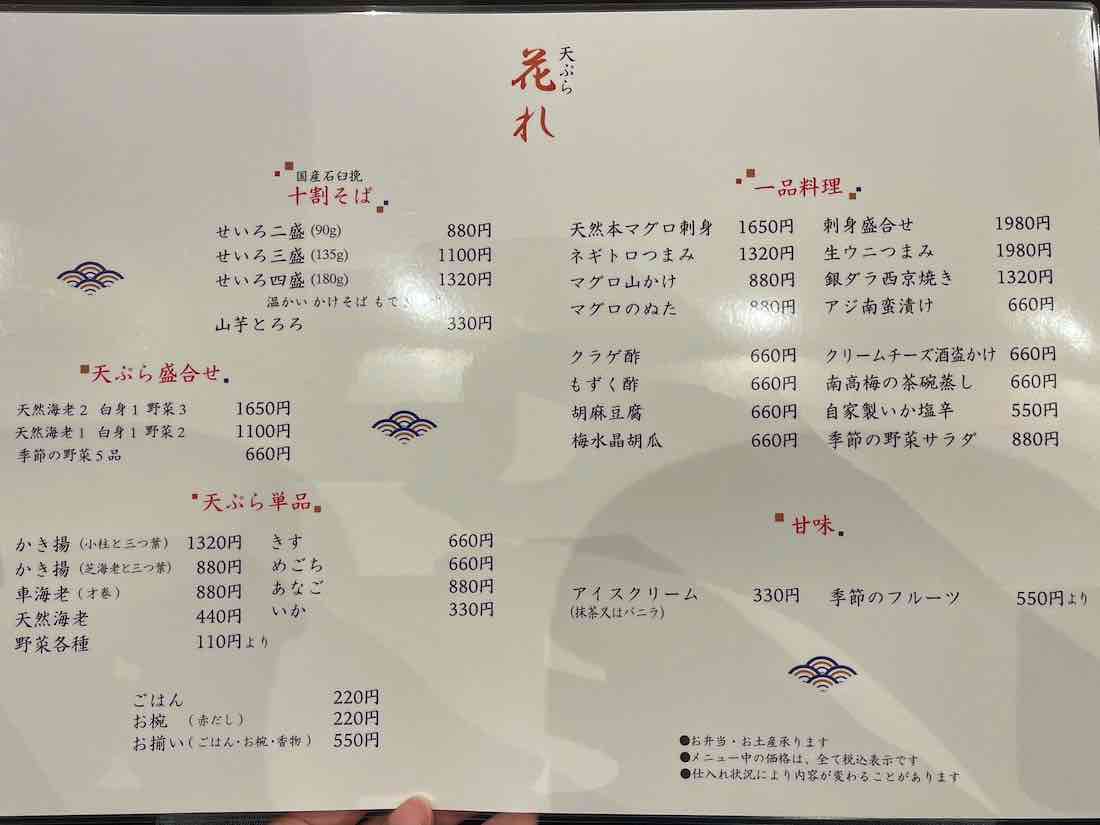 天ぷら
花れ
国産石臼挽
十割そば
せいろ二盛 (90g) 880円
せいろ三盛 (135g) 1100円
せいろ四盛 (180g) 1320円
温かい かけそば もでき
山芋とろろ 330円
天ぷら盛合せ
天然海老2 白身1 野菜3 1650円
天然海老1 白身1 野菜2 1100円
季節の野菜5品 660円
天ぷら単品
かき揚 (小柱と三つ葉) 1320円
かき揚 (芝海老と三つ葉) 880円
車海老 (才巻) 880円
天然海老 440円
野菜各種 110円より
きす 660円
めごち 660円
あなご 880円
いか 330円
ごはん 220円
お椀 (赤だし) 220円
お揃い (ごはん・お椀・香物) 550円
一品料理
天然本マグロ刺身 1650円
ネギトロつまみ 1320円
マグロ山かけ 880円
マグロのぬた 880円
クラゲ酢 660円
もずく酢 660円
胡麻豆腐 660円
梅水晶胡瓜 660円
刺身盛合せ 1980円
生ウニつまみ 1980円
銀ダラ西京焼き 1320円
アジ南蛮漬け 660円
クリームチーズ酒盗かけ 660円
南高梅の茶碗蒸し 660円
自家製いか塩辛 550円
季節の野菜サラダ 880円
甘味
アイスクリーム 330円
(抹茶又はバニラ)
季節のフルーツ 550円より
●お弁当・お土産承ります
●メニュー中の価格は、全て税込表示です
●仕入れ状況により内容が変わることがあります